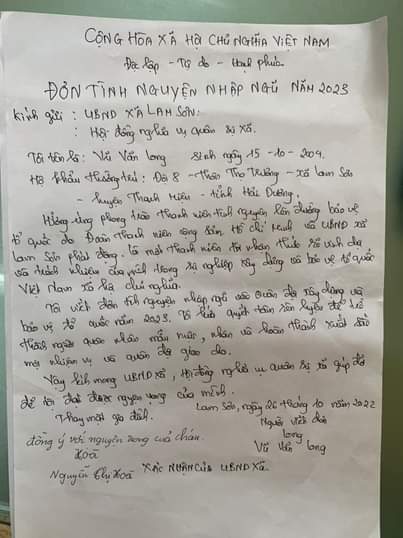 CỘNG HÒA XÃ HỘI CHỦ NGHĨA VIỆT NAM
Độc lập - Tự do - Hạnh phúc
ĐƠN TÌNH NGUYỆN NHẬP NGŨ NĂM 2023
Kính gửi : UBND XÃ LAM SƠN :
: Hội đồng nghĩa vụ quân sự xã.
Tôi tên là : Vũ Văn Long Sinh ngày 15 - 10 - 2004.
Hộ khẩu thường trú : Đội 8 - thôn Thọ Trương - xã Lam Sơn
- huyện Thanh Miện - tỉnh Hải Dương.
Hưởng ứng phong trào thanh niên tình nguyện lên đường bảo vệ
tổ quốc do Đoàn thanh niên cộng sản Hồ Chí Minh và UBND xã
Lam Sơn phát động. Là một thanh niên tôi nhận thức rõ vinh dự
và trách nhiệm của mình trong sự nghiệp xây dựng và bảo vệ tổ quốc
Việt Nam xã hội chủ nghĩa.
Tôi viết đơn tình nguyện nhập ngũ vào Quân đội xây dựng và
bảo vệ tổ quốc năm 2023. Tôi hứa quyết tâm rèn luyện để trở
thành người quân nhân mẫu mực, nhận và hoàn thành xuất sắc
mọi nhiệm vụ mà quân đội giao cho.
Vậy kính mong UBND xã, Hội đồng nghĩa vụ quân sự xã giúp đỡ
để tôi đạt được nguyện vọng của mình.
Lam Sơn, ngày 26 tháng 10 năm 2022
Thay mặt gia đình. Người viết đơn
đồng ý với nguyện vọng của cháu. Long
Hoà Vũ Văn Long
Nguyễn Thị Hoà XÁC NHẬN CỦA UBND XÃ.